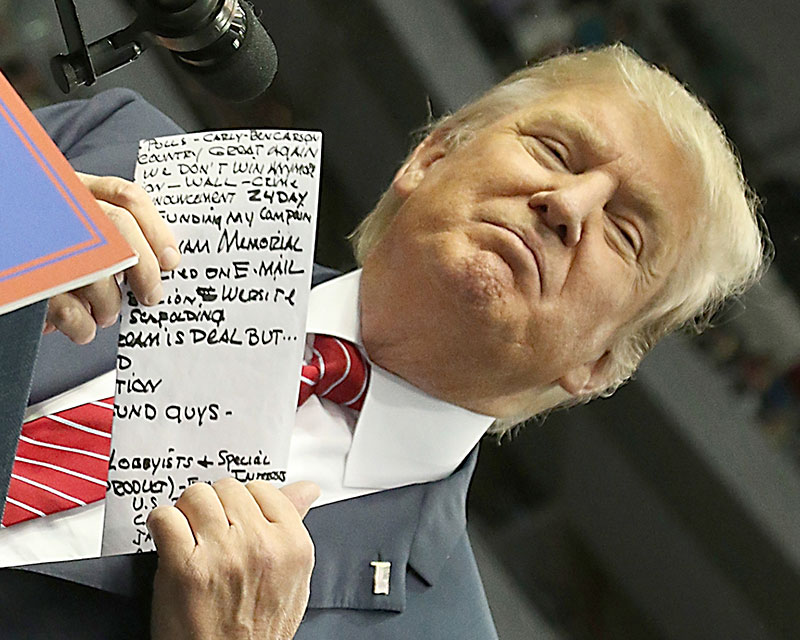 POLLS - CARLY - BEN CARSON
COUNTRY GREAT AGAIN
WE DON'T WIN ANYMORE
ON - WALL - CRIME
NOUNCEMENT 24 DAY
FUNDING MY CAMPAIN
MEMORIAL
ON E-MAIL
WEBSITE
SCAFOLDING
IS DEAL BUT...
D
TION
UND GUYS -
LOBBYISTS + SPECIAL
INTERESS
U.S.